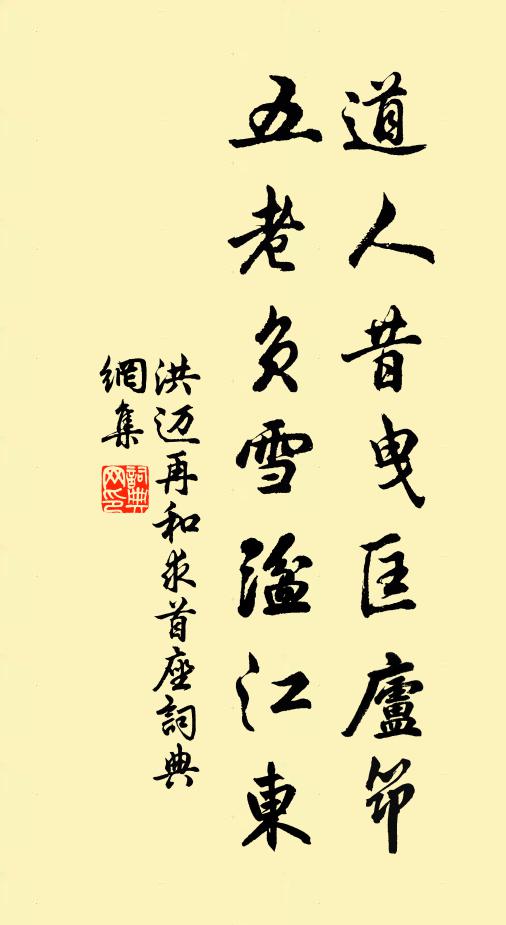 道人昔曳匡廬筇
五老負雪湓江東
洪迈再和求首座詞典
網集
詞典
网印